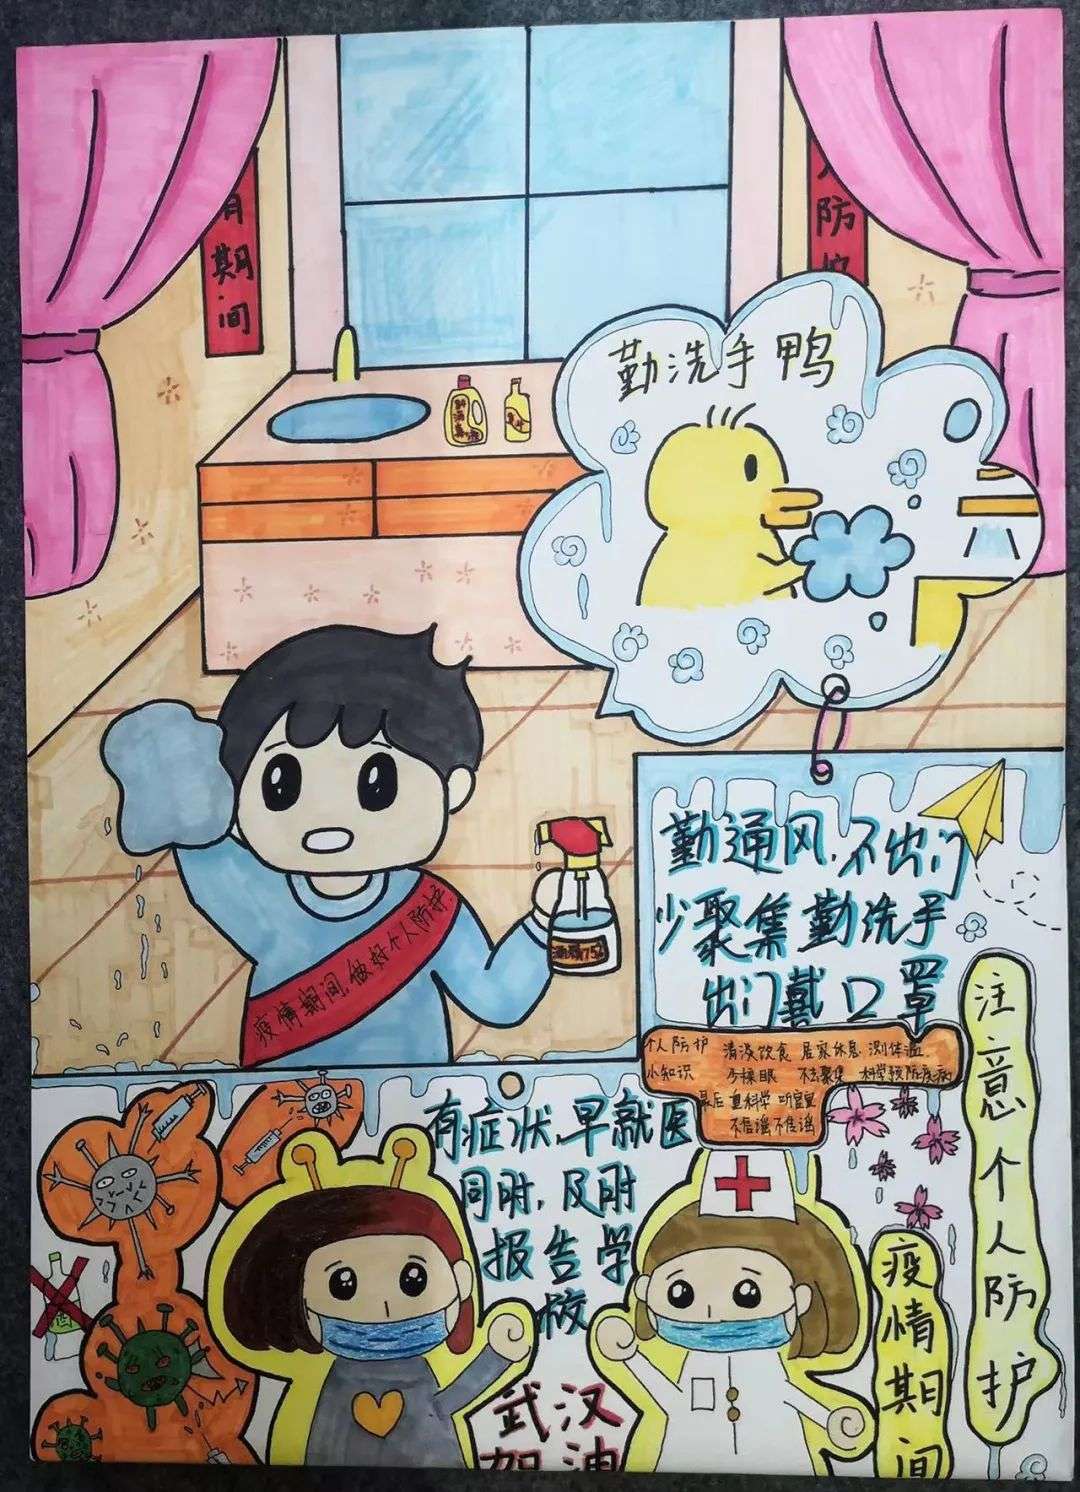 期间
防护
勤洗手鸭
消毒液
疫情期间,做好个人防护
酒精75%
勤通风,不出门
少聚集勤洗手
出门戴口罩
个人防护 清淡饮食 居家休息 测体温
小知识 揉眼 不去聚集 科学预防疾病
最后 直科学
不信谣不传谣
注意个人防护
有症状,早就医
同时,及时
报告学
校
疫情期间
酒
武汉
加油